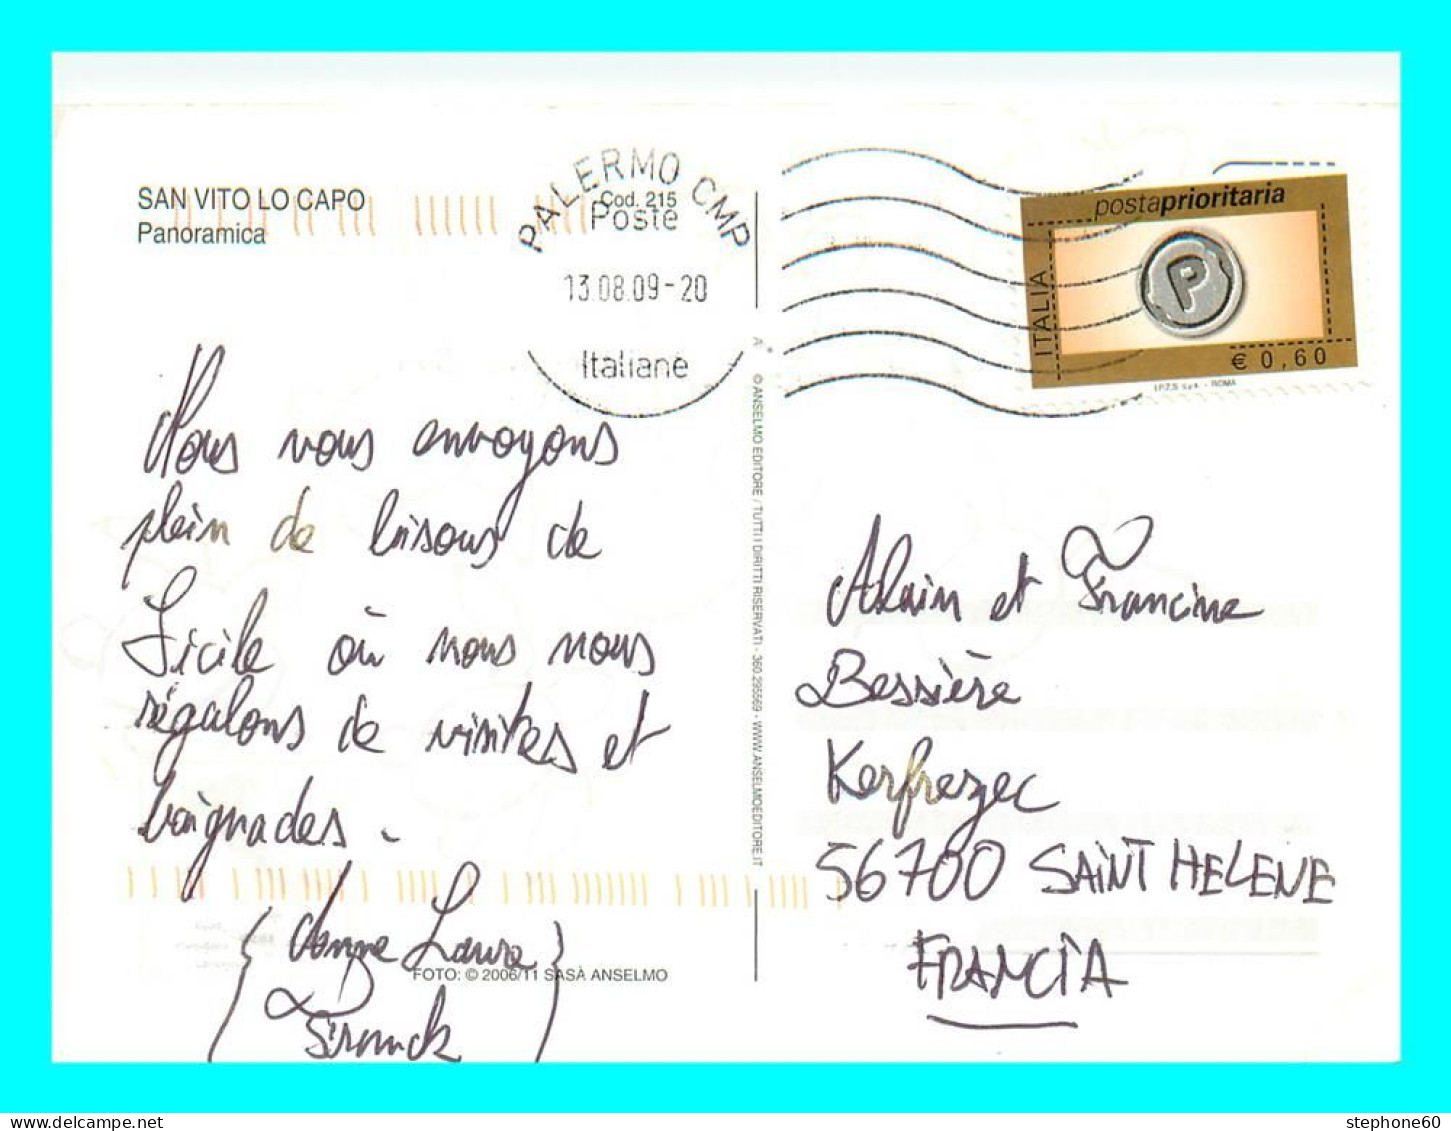 SAN VITO LO CAPO
Panoramica
Cod. 215
PALERMO CMP
Poste
13.08.09-20
Italiane
postaprioritaria
ITALIA
P
€ 0,60
I.P.Z.S. S.p.A. - ROMA
Nous vous envoyons
plein de bisous de
Sicile où nous nous
régalons de visites et
baignades.
Anne Laure
Franck
FOTO: © 2006/11 SASÀ ANSELMO
© ANSELMO EDITORE / TUTTI I DIRITTI RISERVATI - 360.295569 - WWW.ANSELMOEDITORE.IT
Alain et Francine
Bessière
Kerfrezec
56700 SAINT HELENE
FRANCIA
stephone60